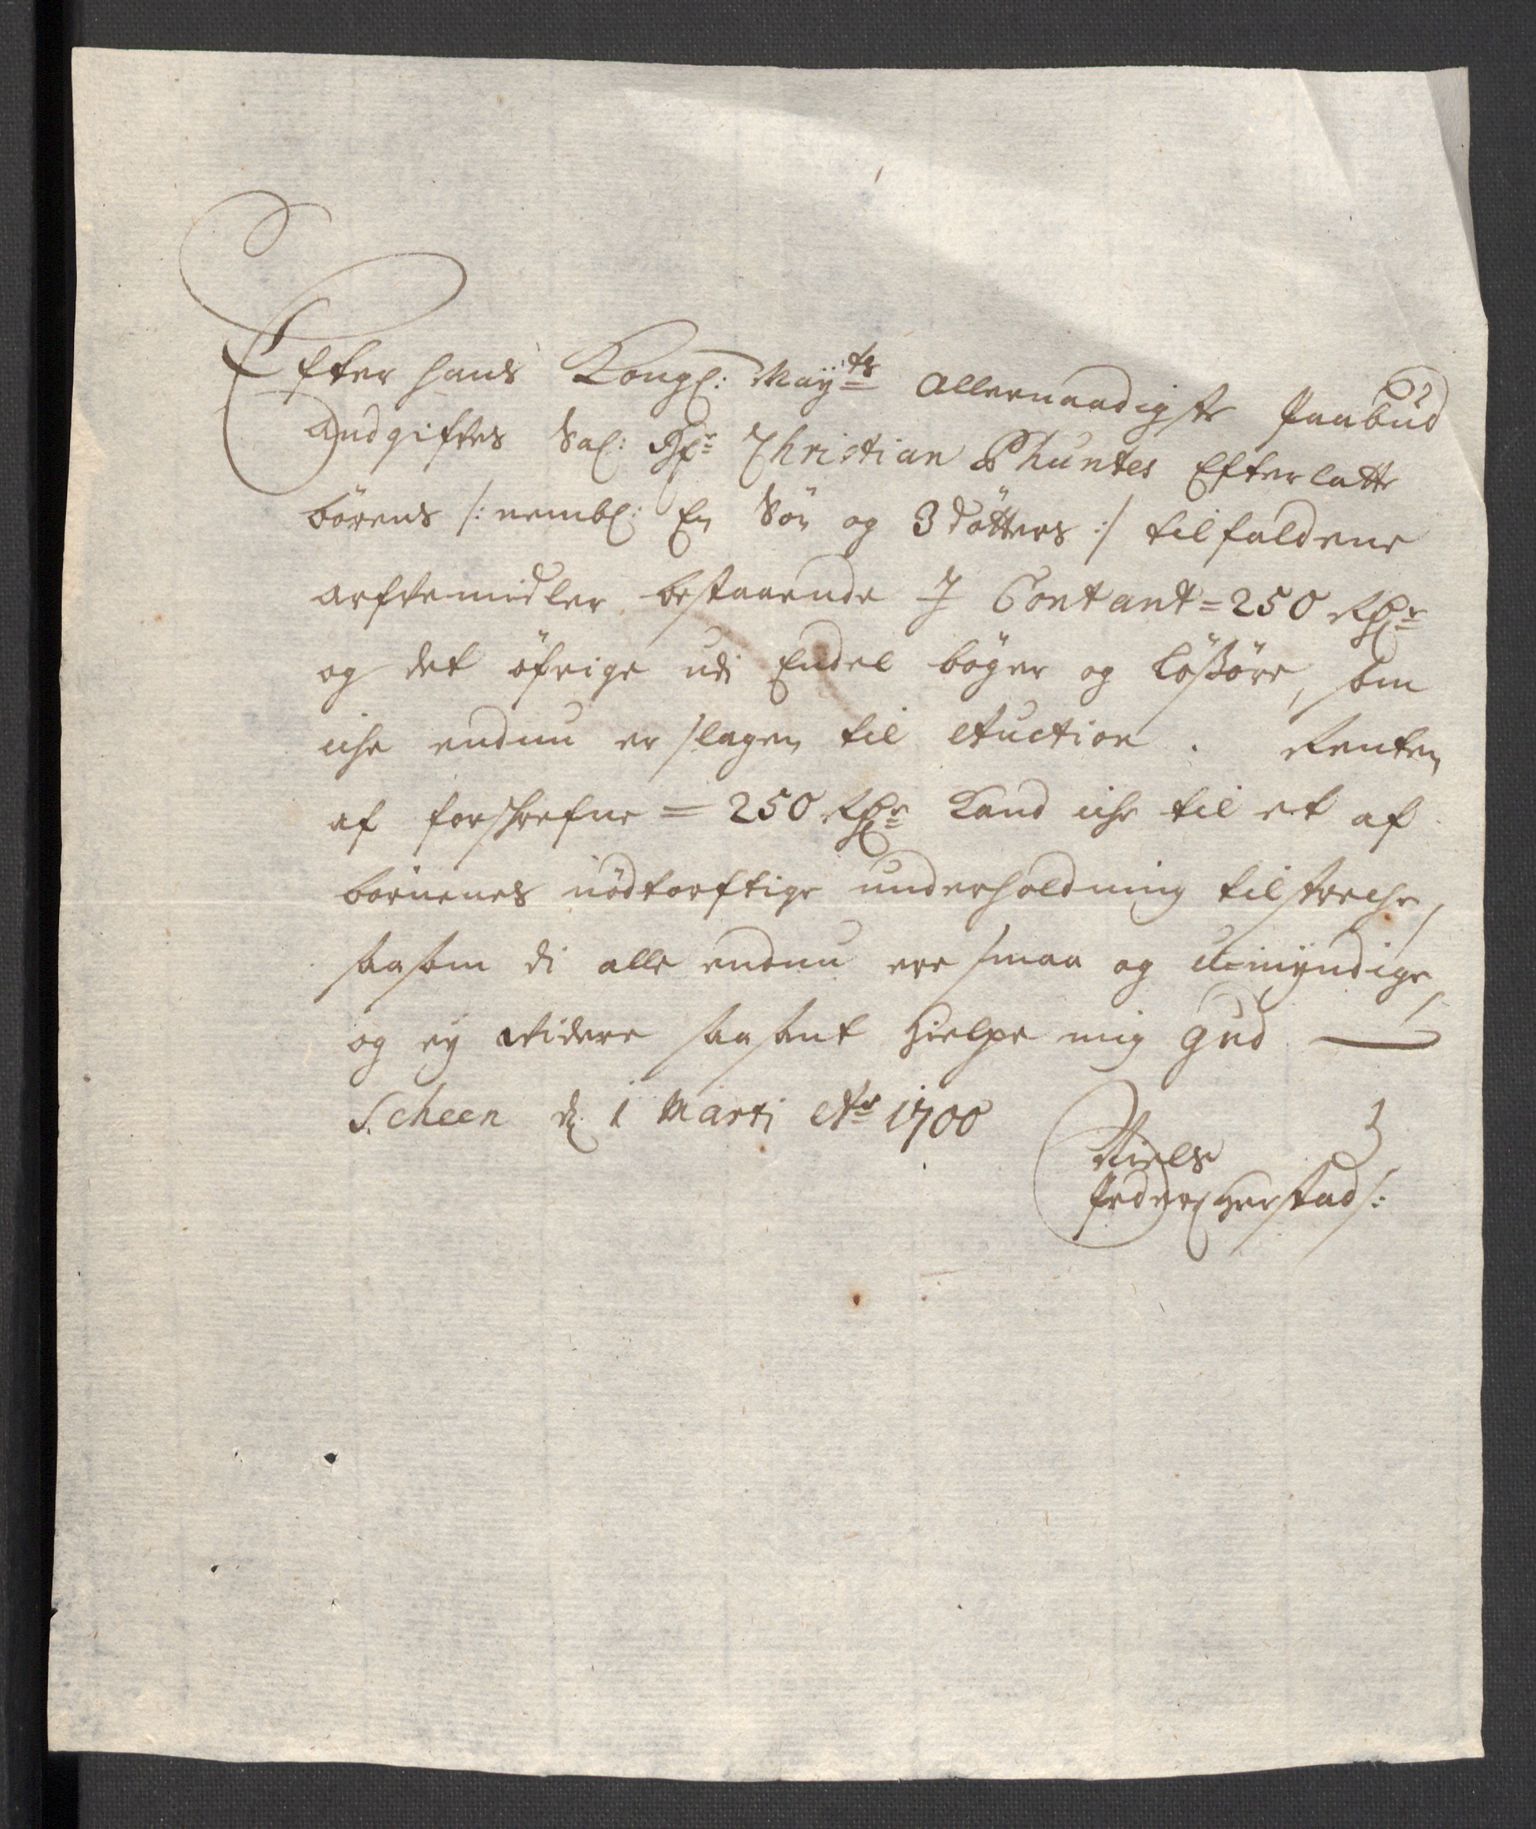 Efter Hans Kongl: Maÿ:ts Allernaadigste Paabud
Andgifves Sal: Hr Christian Phuntes Efterlatte
börens /: nembl: En Sön og 3 dötters :/ tilfaldene
arfvemidler bestaaende J Contant = 250 Rdr
og det öfrige udi Endel böger og lösöre, som
iche endnu er slagen til Auction. Renten
af forschrefne = 250 Rdr Kand iche til et af
börnenes nödtorftige underholdning tilstreche,
saasom di alle endnu ere smaa og u-mÿndige,
og eÿ Videre saasant hielpe mig Gud
Scheen d. 1 Marti Ao 1700
Niels
Peders: Herstad